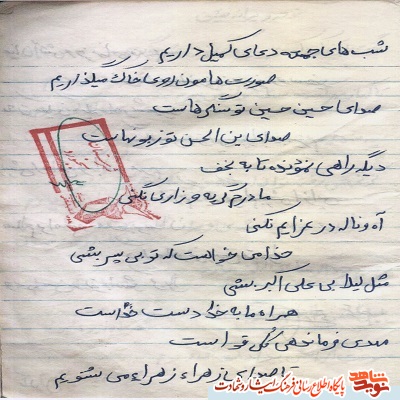 شب های جمعه دعای کمیل داریم
صورت هامون روی خاک میگذاریم
صدای حسین حسین تو سنگرهاست
صدای بن الحسن تو زبونهاست
دیگه راهی نمونده تا به نجف
مادرم گریه و زاری نکنی
آه و ناله در عزایم نکنی
خدا می خواست که تو بی پسر بشی
مثل لیلا بی علی اکبر بشی
همراه ما به خدا دست خداست
مهدی فرماندهی کل قوا است
صدای یا زهراء زهراء می شنویم
نوید شاهد
پایگاه اطلاع رسانی فرهنگ ایثار و شهادت